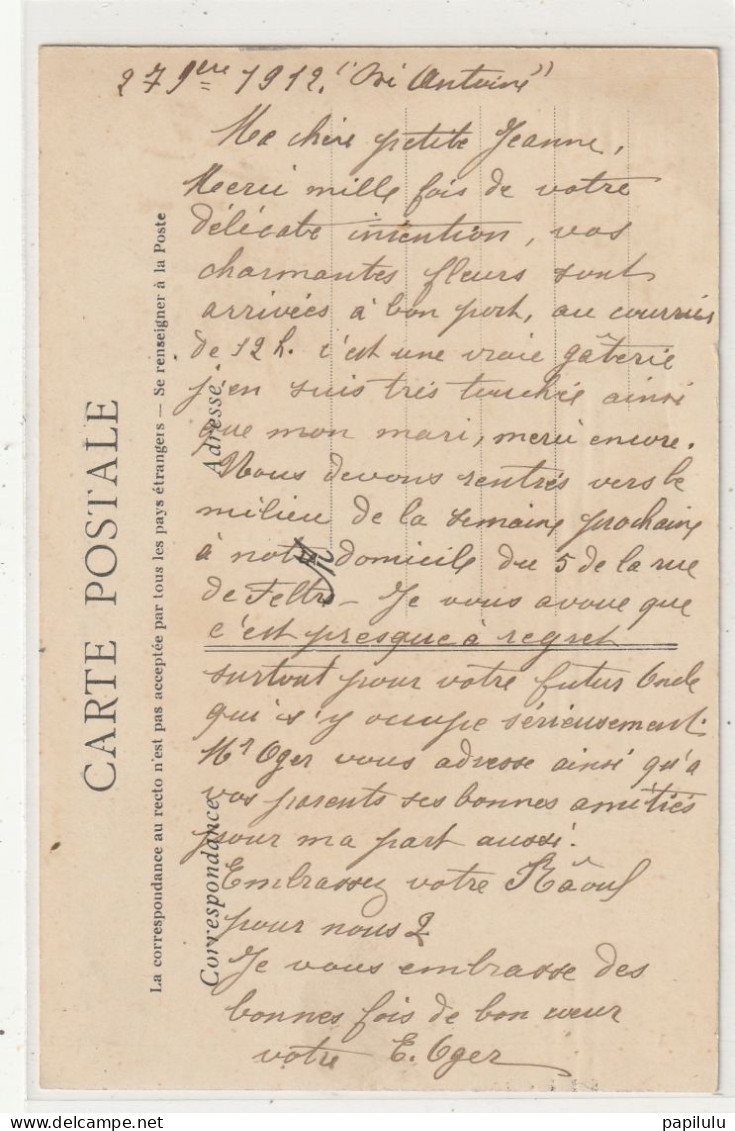 27 9bre 1912. "Antoine"
Ma chère petite Jeanne,
Merci mille fois de votre
délicate intention, vos
charmantes fleurs sont
arrivées à bon port, au courrier
de 12 h. c'est une vraie gâterie
j'en suis très touchée ainsi
que mon mari, merci encore.
Nous devons rentrés vers le
milieu de la semaine prochaine
à notre domicile du 5 de la rue
de Feltre – Je vous avoue que
c'est presque à regret
surtout pour votre futur Oncle
qui s'y occupe sérieusement.
Mr Oger vous adresse ainsi qu'a
vos parents ses bonnes amitiés
pour ma part aussi.
Embrassez votre Râoul
pour nous 2
Je vous embrasse des
bonnes fois de bon cœur
votre E. Oger
CARTE POSTALE
La correspondance au recto n'est pas acceptée par tous les pays étrangers — Se renseigner à la Poste
Correspondance
Adresse
papilulu